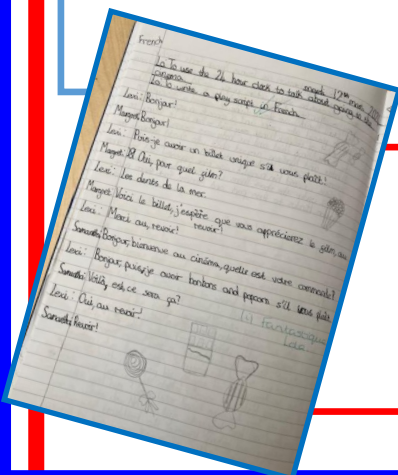 French
samedi 12th mars
Lo To use the 24 hour clock to talk about going to the
cinema
Lo To write a play script in French
Lexi: Bonjour!
Margret: Bonjour!
Lexi: Puis-je avoir un billet unique s'il vous plaît!
Margret: Oui, pour quel film?
Lexi: Les dents de la mer.
Margret: Voici le billet, j'espère que vous apprécierez le film, au
revoir!
Lexi: Merci au, revoir!
Samantha: Bonjour, bienvenue au cinéma, quelle est votre commande!
Lexi: Bonjour, puis-je avoir bonbons and popcorn s'il vous plaît
Samantha: Voilà, est, ce sera ça?
Lexi: Oui, au revoir!
Samantha: Revoir!
Tu fantastique